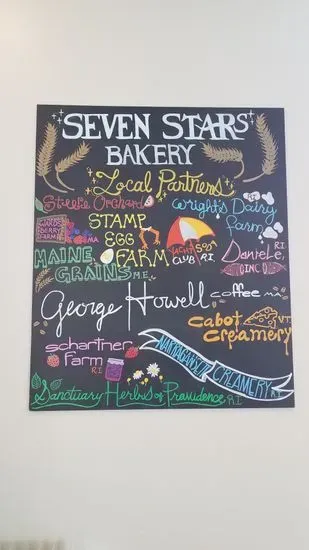 SEVEN STARS
BAKERY
Local Partners
Steere Orchard
Wright's Dairy
Farm
WARDS
BERRY
FARM
MA
STAMP
EGG
FARM
YACHT
CLUB
SODA
R.I.
Daniele,
INC
R.I.
MAINE
GRAINS M.E.
George Howell coffee MA
cabot V.T.
creamery
schartner
farm
R.I
NARRAGANSETT CREAMERY R.I
Sanctuary Herbs of Providence R.I